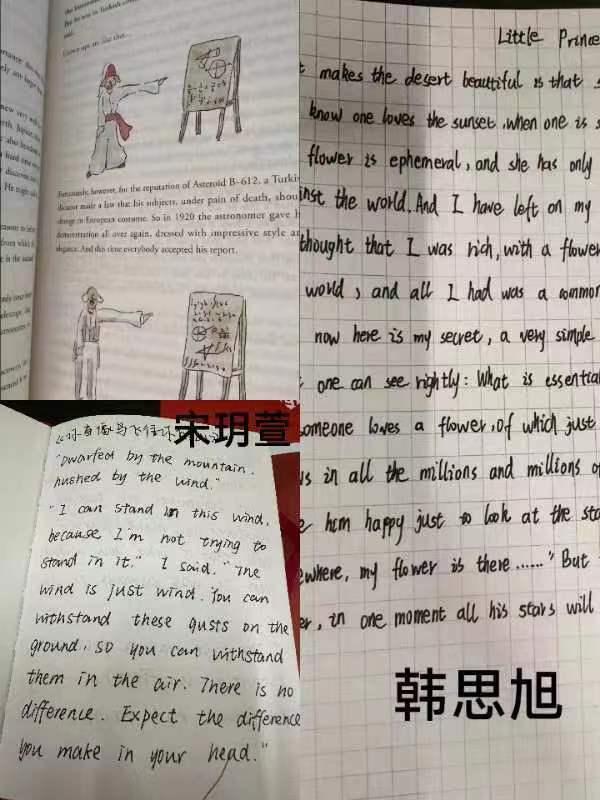 Grown-ups are like that...
Fortunately, however, for the reputation of Asteroid B-612, a Turki
dictator made a law that his subjects, under pain of death, shou
change to European costume. So in 1920 the astronomer gave h
demonstration all over again, dressed with impressive style a
elegance. And this time everybody accepted his report.
宋玥萱
《你当像鸟飞往你
"Dwarfed by the mountain.
hushed by the wind."
"I can stand in this wind,
because I'm not trying to
stand in it." I said. "The
wind is just wind. You can
withstand these gusts on the
ground, so you can withstand
them in the air. There is no
difference. Expect the difference
you make in your head."
Little Prince
t makes the desert beautiful is that s
know one loves the sunset, when one is s
flower is ephemeral, and she has only
inst the world. And I have left on my
thought that I was rich, with a flower
world, and all I had was a common
now here is my secret, a very simple
one can see rightly: What is essential
omeone loves a flower, of which just
s in all the millions and millions of
e him happy just to look at the sta
ewhere, my flower is there......" But
er, in one moment all his stars will
韩思旭